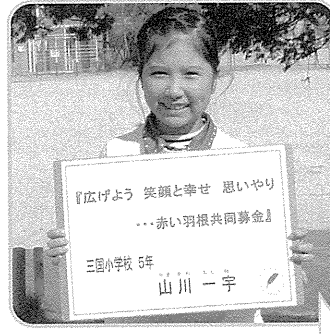 『広げよう 笑顔と幸せ 思いやり
…赤い羽根共同募金』
三国小学校 5年
山川 一宇